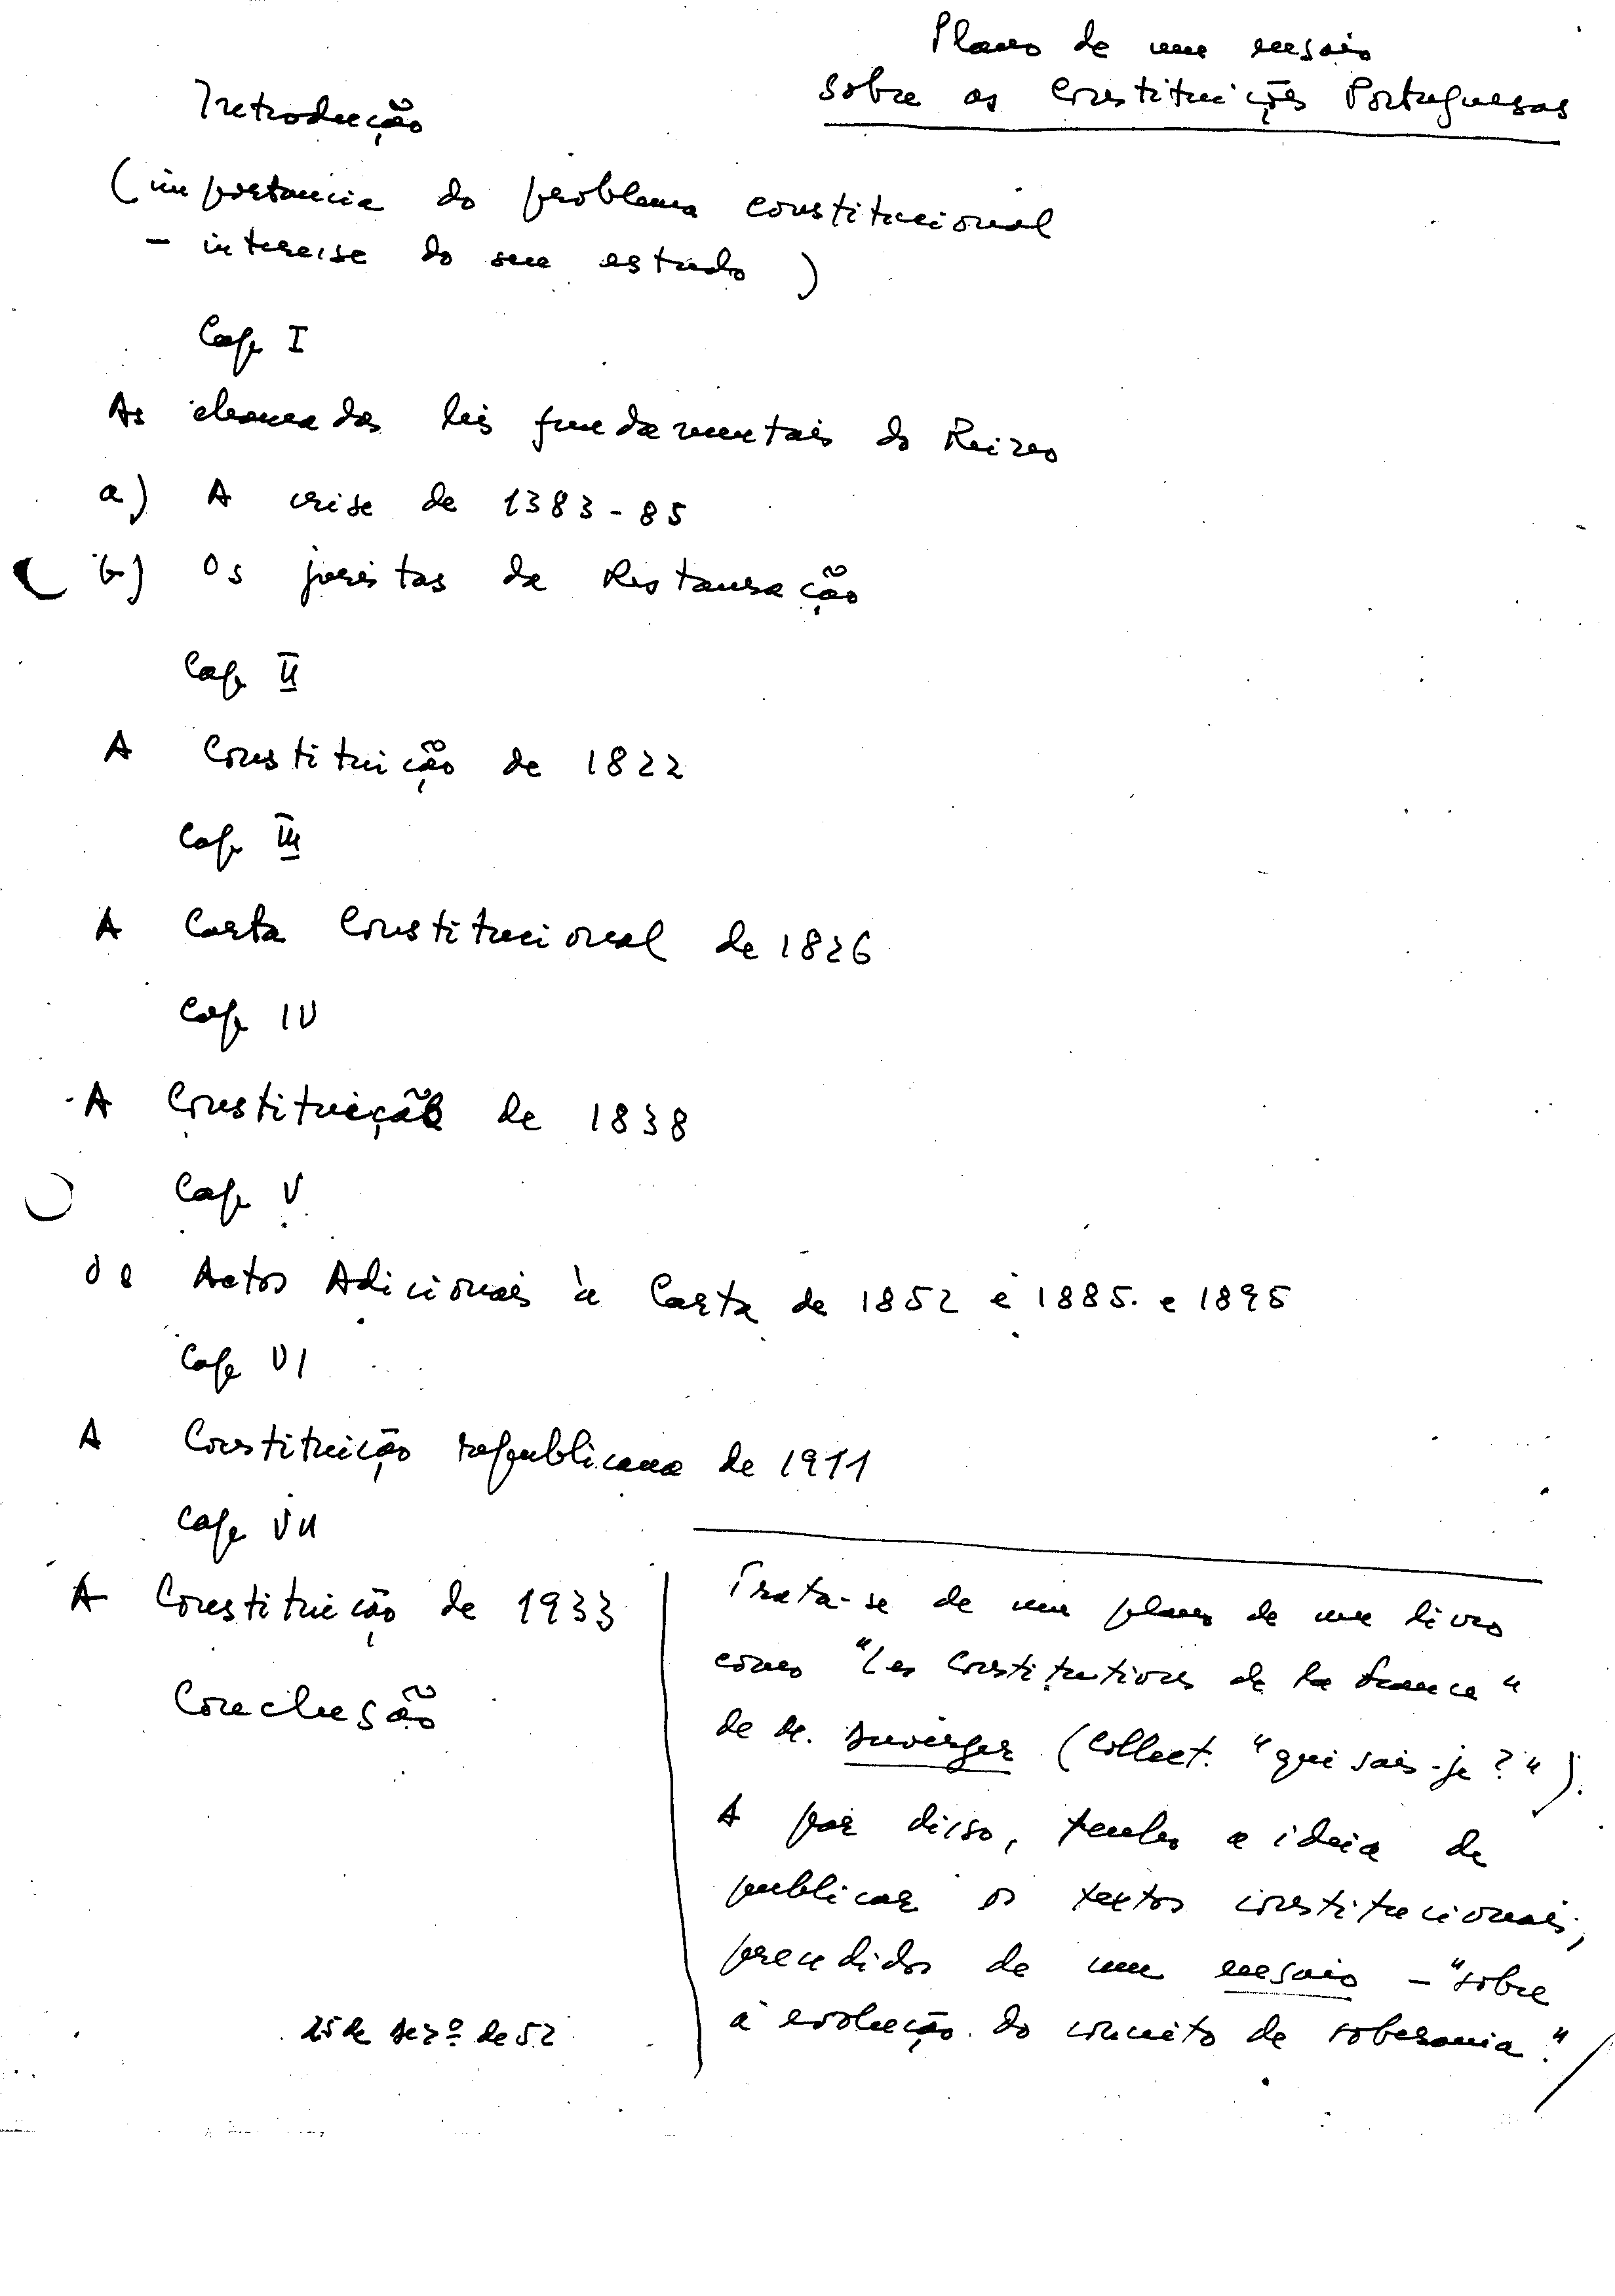 Plano de um ensaio
sobre as Constituições Portuguesas
Introdução
(importancia do problema constitucional
- interesse do seu estudo)
Cap. I
As chamadas leis fundamentais do Reino
a) A crise de 1383-85
b) Os juristas da Restauração
Cap. II
A Constituição de 1822
Cap. III
A Carta Constitucional de 1826
Cap. IV
A Constituição de 1838
Cap. V
Os Actos Adicionais à Carta de 1852 e 1885 e 1895
Cap. VI
A Constituição republicana de 1911
Cap. VII
A Constituição de 1933
Conclusão
25 de Dezº de 52
Trata-se de um plano de um livro
como "Les Constitutions de la France"
de M. Duverger (Collect. "que sais-je?").
A par disso, tenho a ideia de
publicar os textos constitucionais,
precedidos de um ensaio - "sobre
a evolução do conceito de soberania."